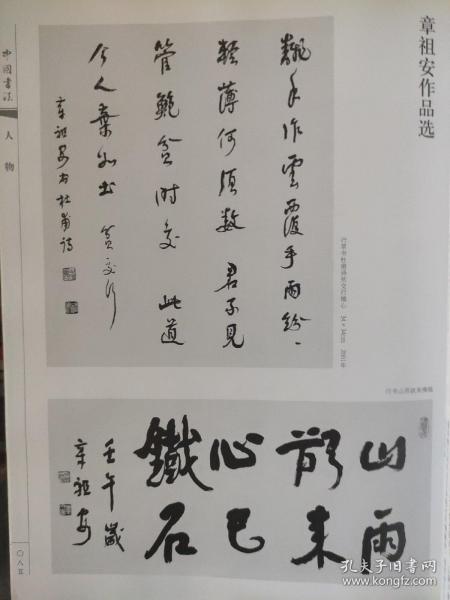 章祖安作品选
翻手作雲覆手雨紛々
輕薄何須數 君不見
管鮑貧時交 此道
今人棄如土 貧交行
章祖安书杜甫詩
行草书杜甫诗贫交行镜心 34×34cm 2001年
行书山雨欲来横幅
山雨
欲来
心已
鐵石
壬午歲
章祖安
中国书法
人物
〇八五
孔夫子旧书网